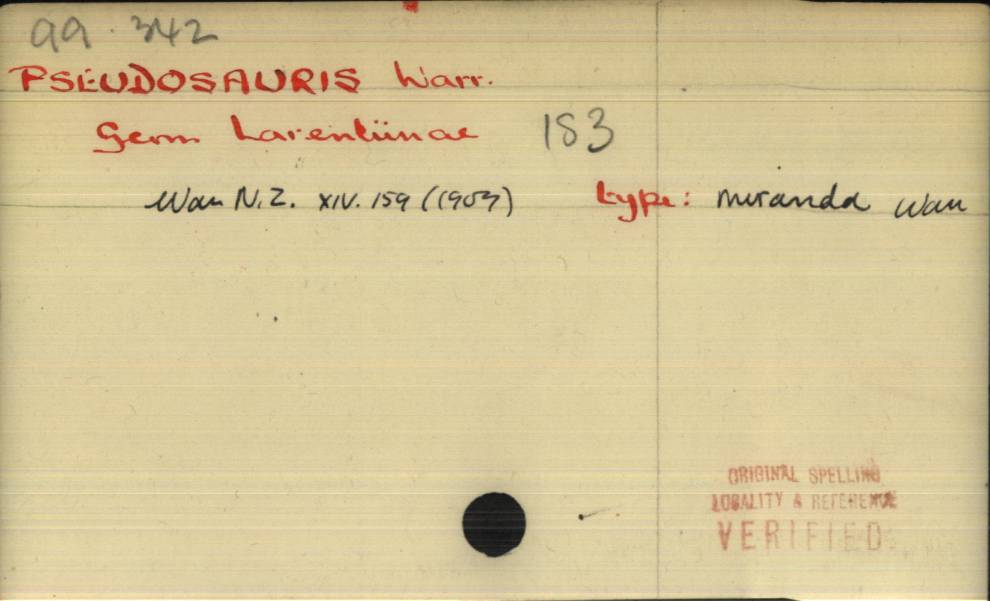 99.342
PSEUDOSAURIS Warr.
Geom Larentiinae 183
Warr N.Z. XIV. 159 (1907) type: miranda Warr
ORIGINAL SPELLING
LOCALITY & REFERENCE
VERIFIED